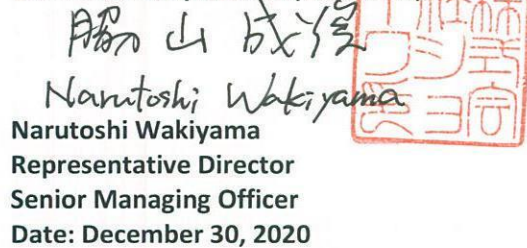 脇山 成俊
Narutoshi Wakiyama
Narutoshi Wakiyama
Representative Director
Senior Managing Officer
Date: December 30, 2020